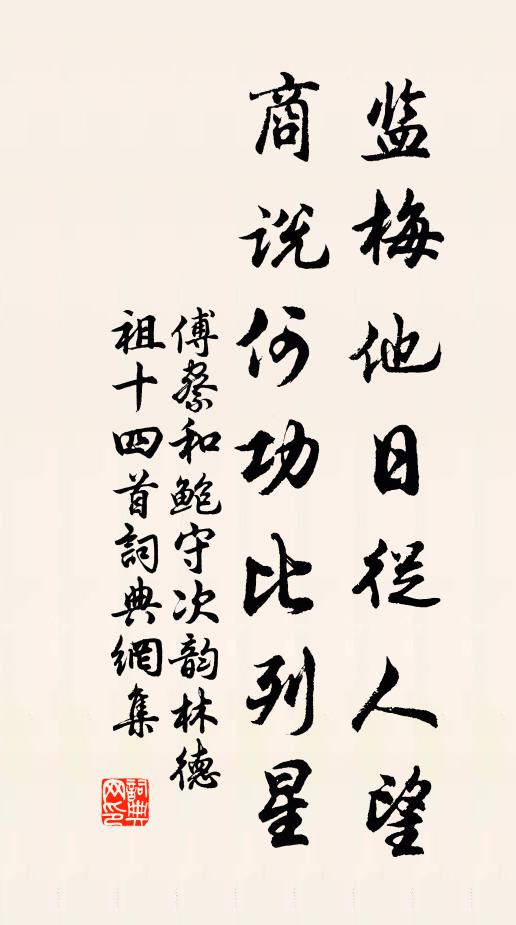 监梅他日從人望
商说何功比列星
傅察和鲍守次韵林德
祖十四首詞典網集
詞典
网印